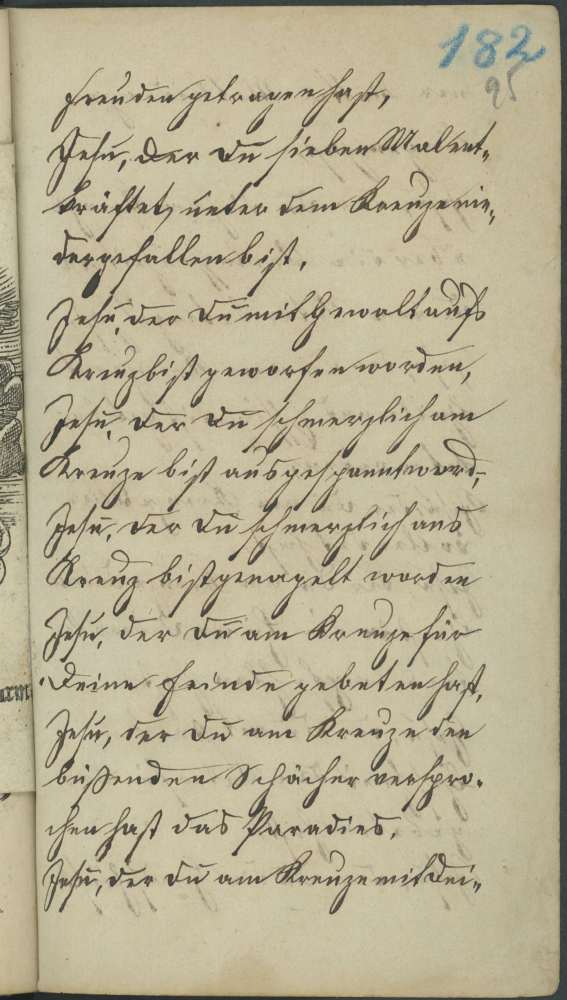 182
95
Freuden getragen hast,
Jesu, der du sieben Mal ent„
kräftet, unter dem Kreuze nie„
dergefallen bist,
Jesu, der du mit Gewalt aufs
Kreuz bist geworfen worden,
Jesu, der du schmerzlich am
Kreuze bist ausgespannt word„
Jesu, der du schmerzlich ans
Kreuz bist genagelt worden
Jesu, der du am Kreuze für
Deine Feinde gebeten hast,
Jesu, der du am Kreuze den
büßenden Schächer verspro„
chen hast das Paradies,
Jesu, der du am Kreuze mit Dei„